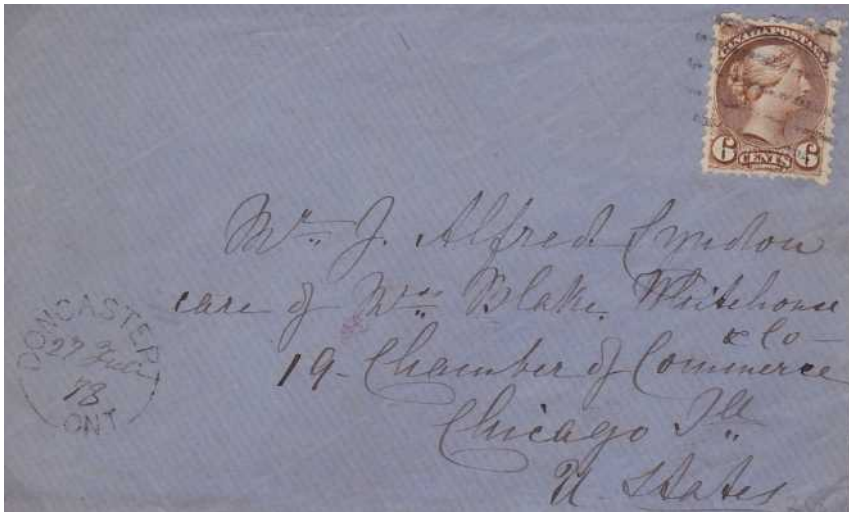 CANADA POSTAGE
6 CENTS 6
Mr. J. Alfred Lyndon
care of Mess Blake, Whitehouse
& Co —
19 - Chamber of Commerce
Chicago Ill
U. States
DONCASTER
27
73
ONT